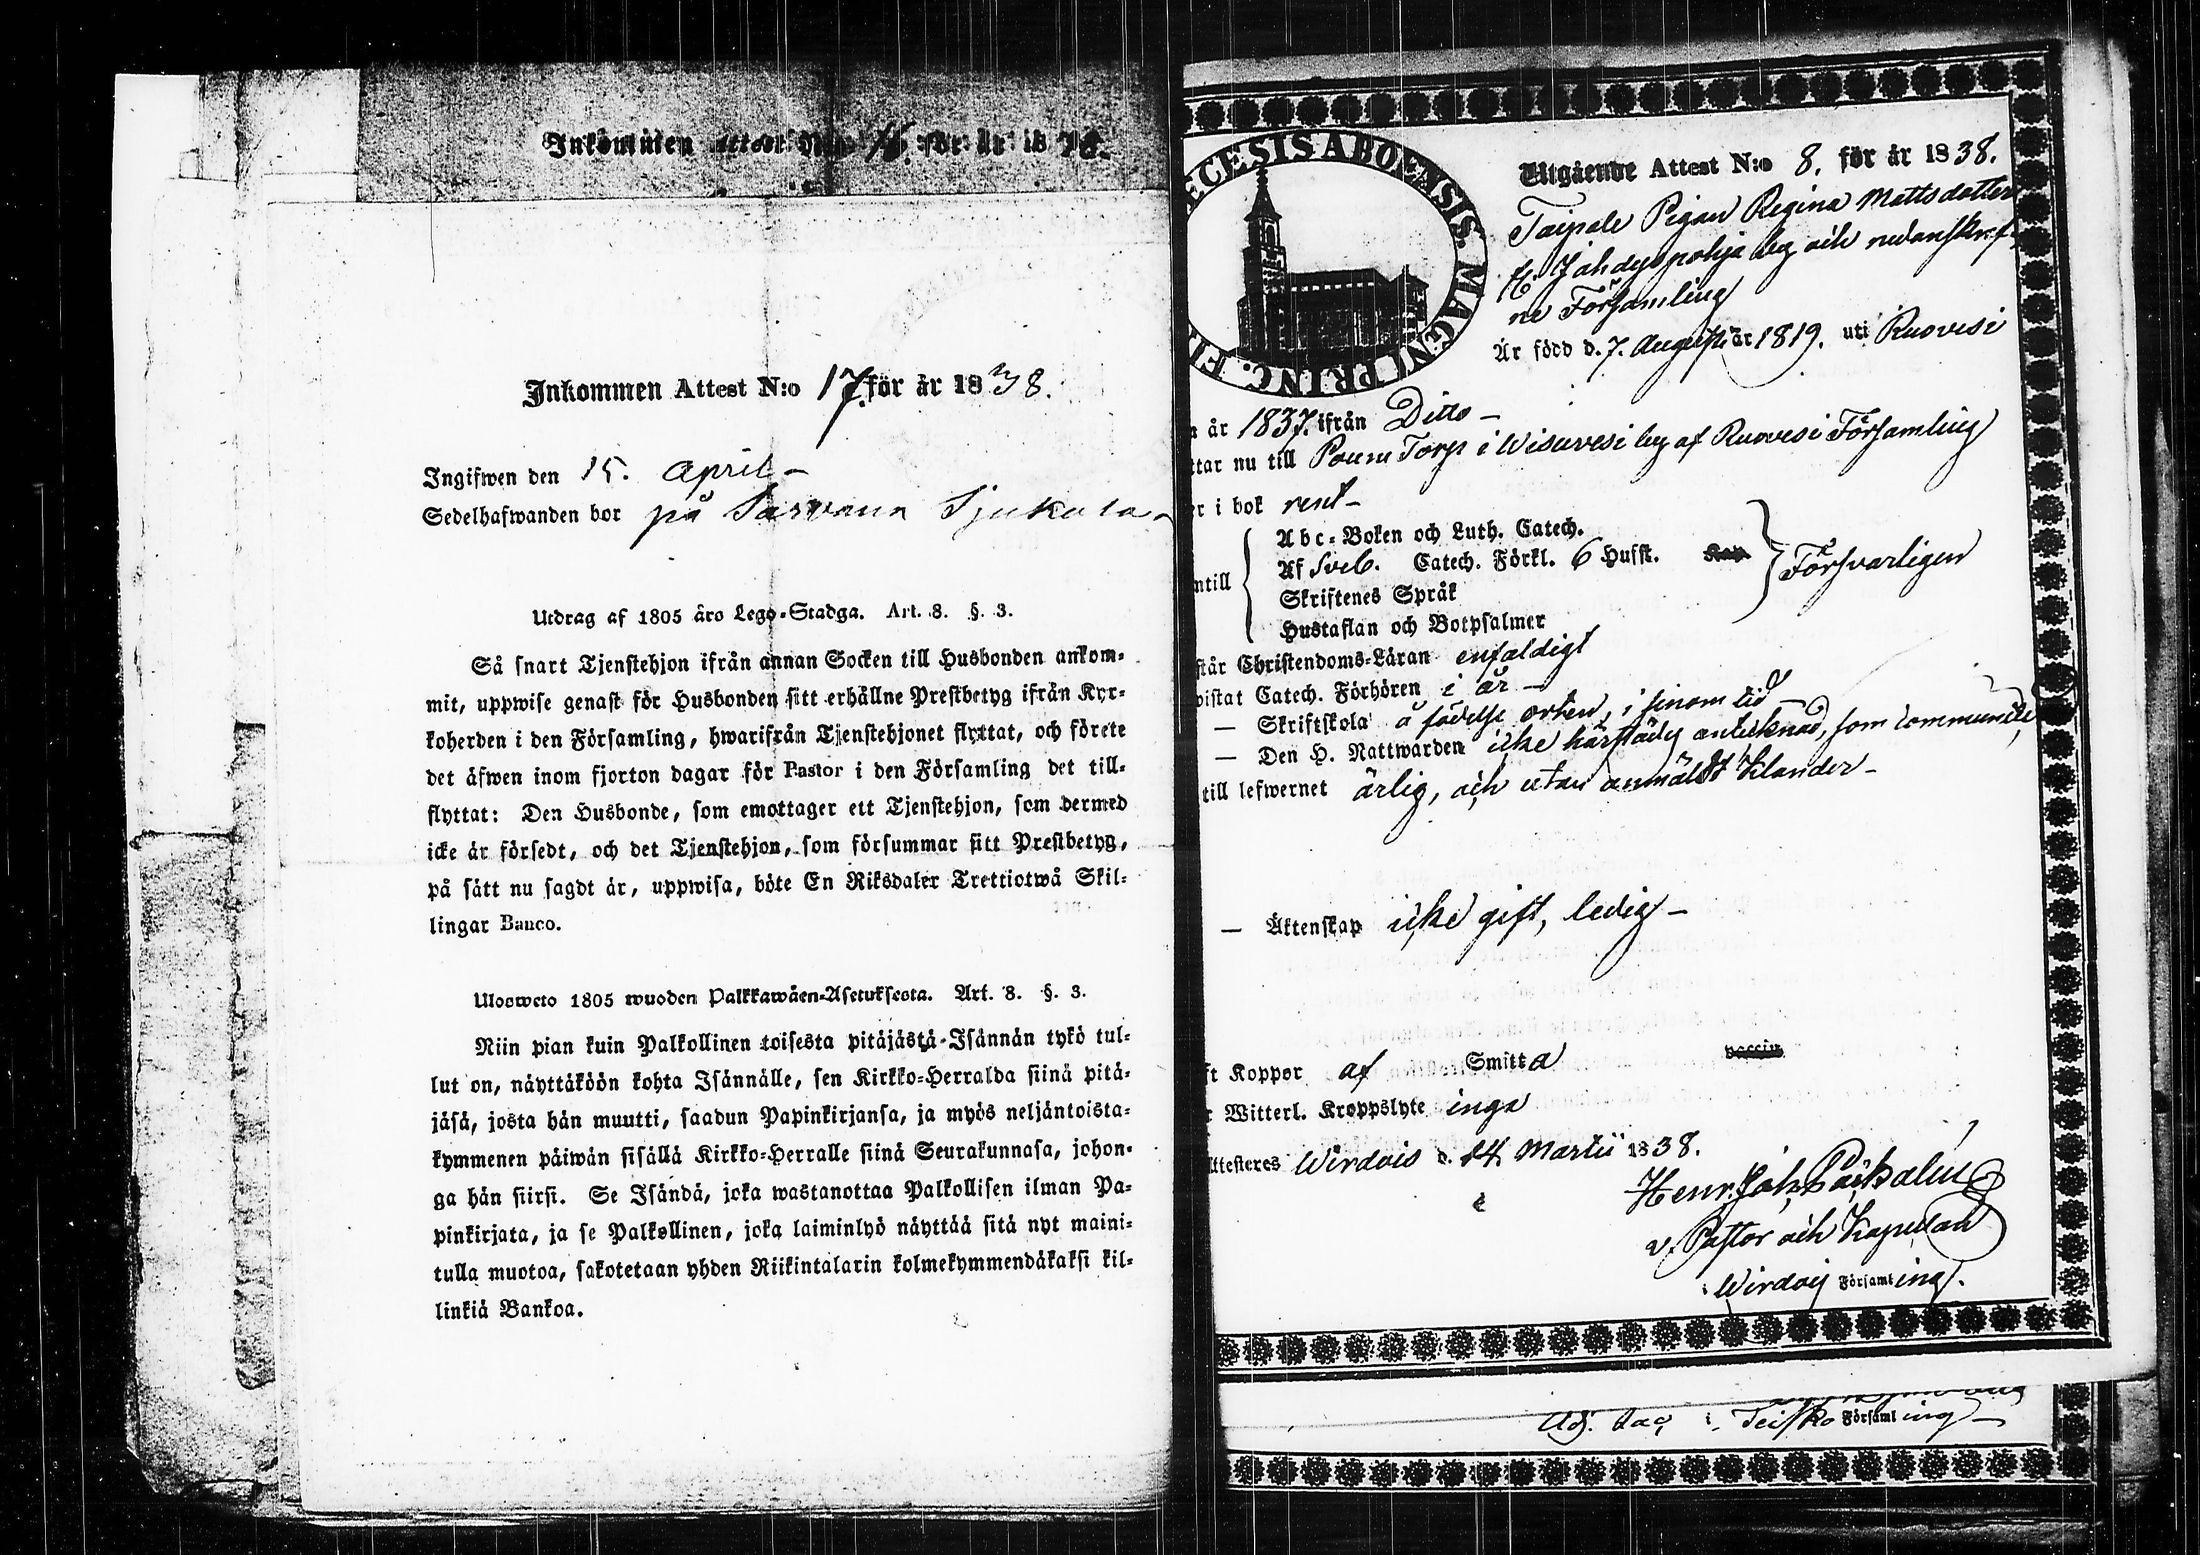 Inkommen Attest N:o 16. för år 1838.
Inkommen Attest N:o 17. för år 1838.
Ingifwen den 15. April –
Sedelhafwanden bor på Sarvana Sjukola –
Utdrag af 1805 års Lego-Stadga. Art. 8. §. 3.
Så snart Tjenstehjon ifrån annan Socken till Husbonden ankom-
mit, uppwise genast för Husbonden sitt erhållne Prestbetyg ifrån Kyr-
koherden i den Församling, hwarifrån Tjenstehjonet flyttat, och förete
det äfwen inom fjorton dagar för Pastor i den Församling det till-
flyttat: Den Husbonde, som emottager ett Tjenstehjon, som dermed
icke är försedt, och det Tjenstehjon, som försummar sitt Prestbetyg,
på sätt nu sagdt är, uppwisa, böte En Riksdaler Trettiotwå Skil-
lingar Banco.
Ulosweto 1805 wuoden Palkkawäen-Asetuksesta. Art. 8. §. 3.
Niin pian kuin Palkollinen toisesta pitäjästä Isännän tykö tul-
lut on, näyttäköön kohta Isännälle, sen Kirkko-Herralda siinä pitä-
jäsä, josta hän muutti, saadun Papinkirjansa, ja myös neljäntoista-
kymmenen päiwän sisällä Kirkko-Herralle siinä Seurakunnasa, johon-
ga hän siirsi. Se Isändä, joka wastanottaa Palkollisen ilman Pa-
pinkirjata, ja se Palkollinen, joka laiminlyö näyttää sitä nyt maini-
tulla muotoa, sakotetaan yhden Riikintalarin kolmekymmendäkaksi kil-
linkiä Bankoa.
ECESIS ABOENSIS. MAGNI PRINC. FI
Utgående Attest N:o 8. för år 1838.
Taipale Pigan Regina Mattsdotter
fr. Jähdyspohja by och nedanskref-
ne Församling
Är född d. 7. Augusti år 1819. uti Ruovesi
n år 1837. ifrån Ditto –
ttar nu till Torp i Wisuvesi by af Ruovesi Församling
er i bok rent –
Abc-Boken och Luth. Catech.
Af Sveb. Catech. Förkl. 6 Hufst. Försvarligen
ntill
Skriftenes Språk
Hustaflan och Botpsalmer
står Christendoms-Läran enfaldigt
vistat Catech. Förhören i år –
– Skriftskola å födelse orten, i sinom tid
– Den H. Nattwarden icke härstädes antecknad, som communicerande,
till lefwernet ärlig, och utan anmäldt klander –
– Äktenskap icke gift, ledig –
ft Koppor af Smitta
r Witterl. Kroppslyte inga
Attesteres Wirdois d. 14 Martii 1838.
Henr. Joh.
v. Pastor och Kapellan
i Wirdois Församling.
Adj. Sac. i Teisko Församling –